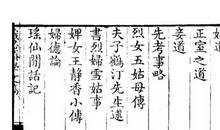 正室之道
妾道
先考事略
烈女五姑母傳
夫子鶴汀先生述
書烈婦雪姑事
婢女王靜香小傳
婦德論
瑤仙閒話記